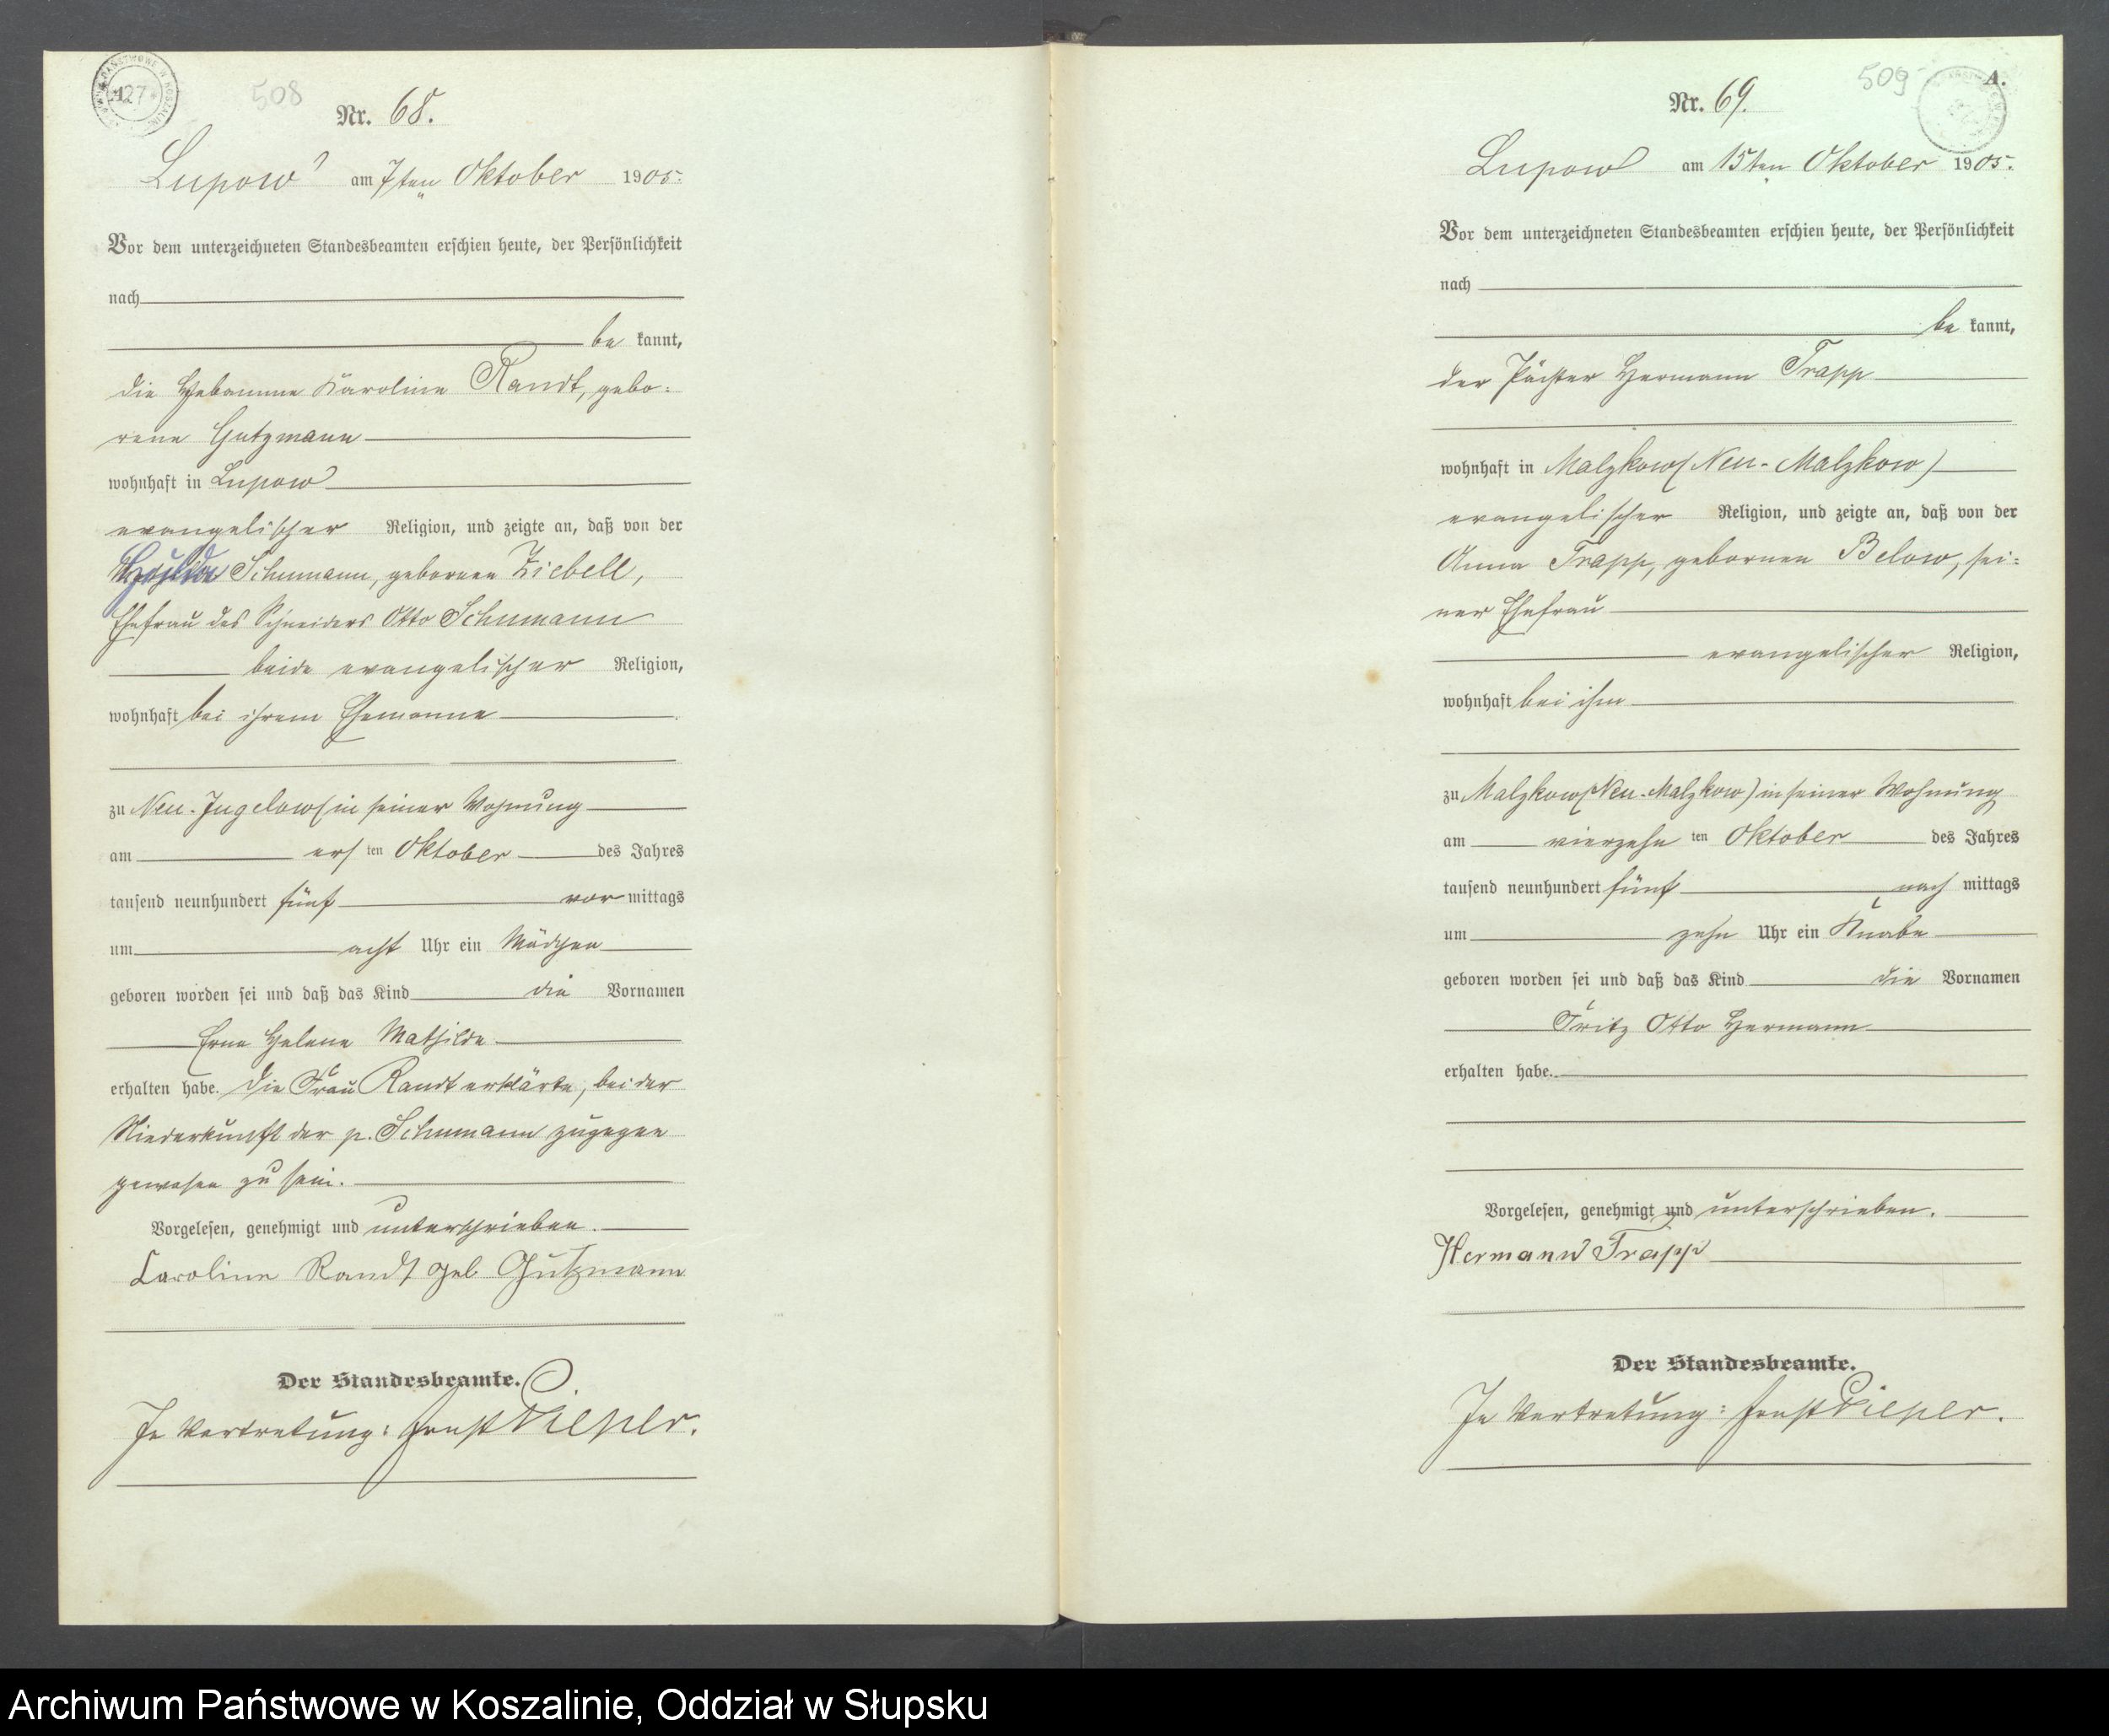 127
508
Nr. 68.
Lupow am 7ten Oktober 1905.
Vor dem unterzeichneten Standesbeamten erschien heute, der Persönlichkeit
nach
be kannt,
die Hebamme Karoline Randt, gebo=
rene Gutzmann
wohnhaft in Lupow
evangelischer Religion, und zeigte an, daß von der
Schumann, gebornen Ziebell,
Ehefrau des Schneiders Otto Schumann
beide evangelischer Religion,
wohnhaft bei ihrem Ehemanne
zu Neu-Jugelow in seiner Wohnung
am ersten Oktober des Jahres
tausend neunhundert fünf vor mittags
um acht Uhr ein Mädchen
geboren worden sei und daß das Kind die Vornamen
Erna Helene Mathilde
erhalten habe. Die Frau Randt erklärte, bei der
Niederkunft der p. Schumann zugegen
gewesen zu sein.
Vorgelesen, genehmigt und unterschrieben.
Caroline Randt geb Gutzmann
Der Standesbeamte.
In Vertretung: Ernst Pieper.
509
A.
Nr. 69.
Lupow am 15ten Oktober 1905.
Vor dem unterzeichneten Standesbeamten erschien heute, der Persönlichkeit
nach
be kannt,
der Pächter Hermann Trapp
wohnhaft in Malzkow (Neu-Malzkow)
evangelischer Religion, und zeigte an, daß von der
Anna Trapp, gebornen Below, sei=
ner Ehefrau
evangelischer Religion,
wohnhaft bei ihm
zu Malzkow (Neu-Malzkow) in seiner Wohnung
am vierzehnten Oktober des Jahres
tausend neunhundert fünf nach mittags
um zehn Uhr ein Knabe
geboren worden sei und daß das Kind die Vornamen
Fritz Otto Hermann
erhalten habe.
Vorgelesen, genehmigt und unterschrieben.
Hermann Trapp
Der Standesbeamte.
In Vertretung: Ernst Pieper.
Archiwum Państwowe w Koszalinie, Oddział w Słupsku